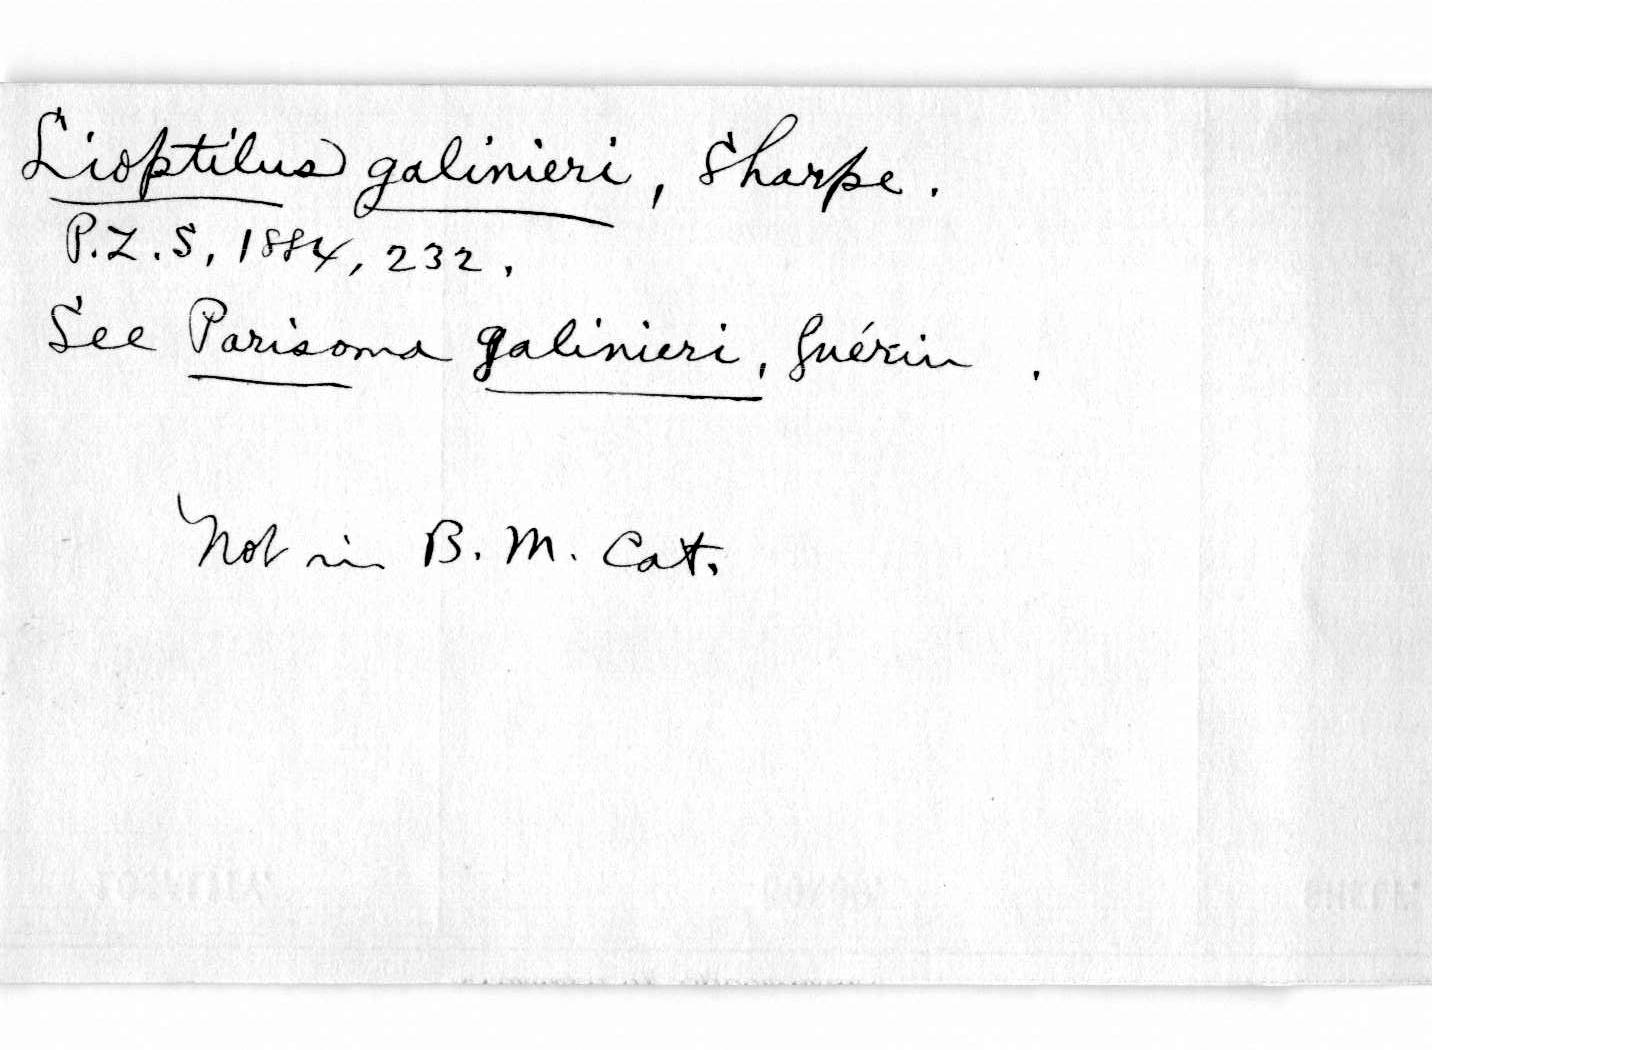 Lioptilus galinieri, Sharpe.
P.Z.S, 1884, 232.
See Parisoma galinieri, Guérin .
Not in B. M. Cat.